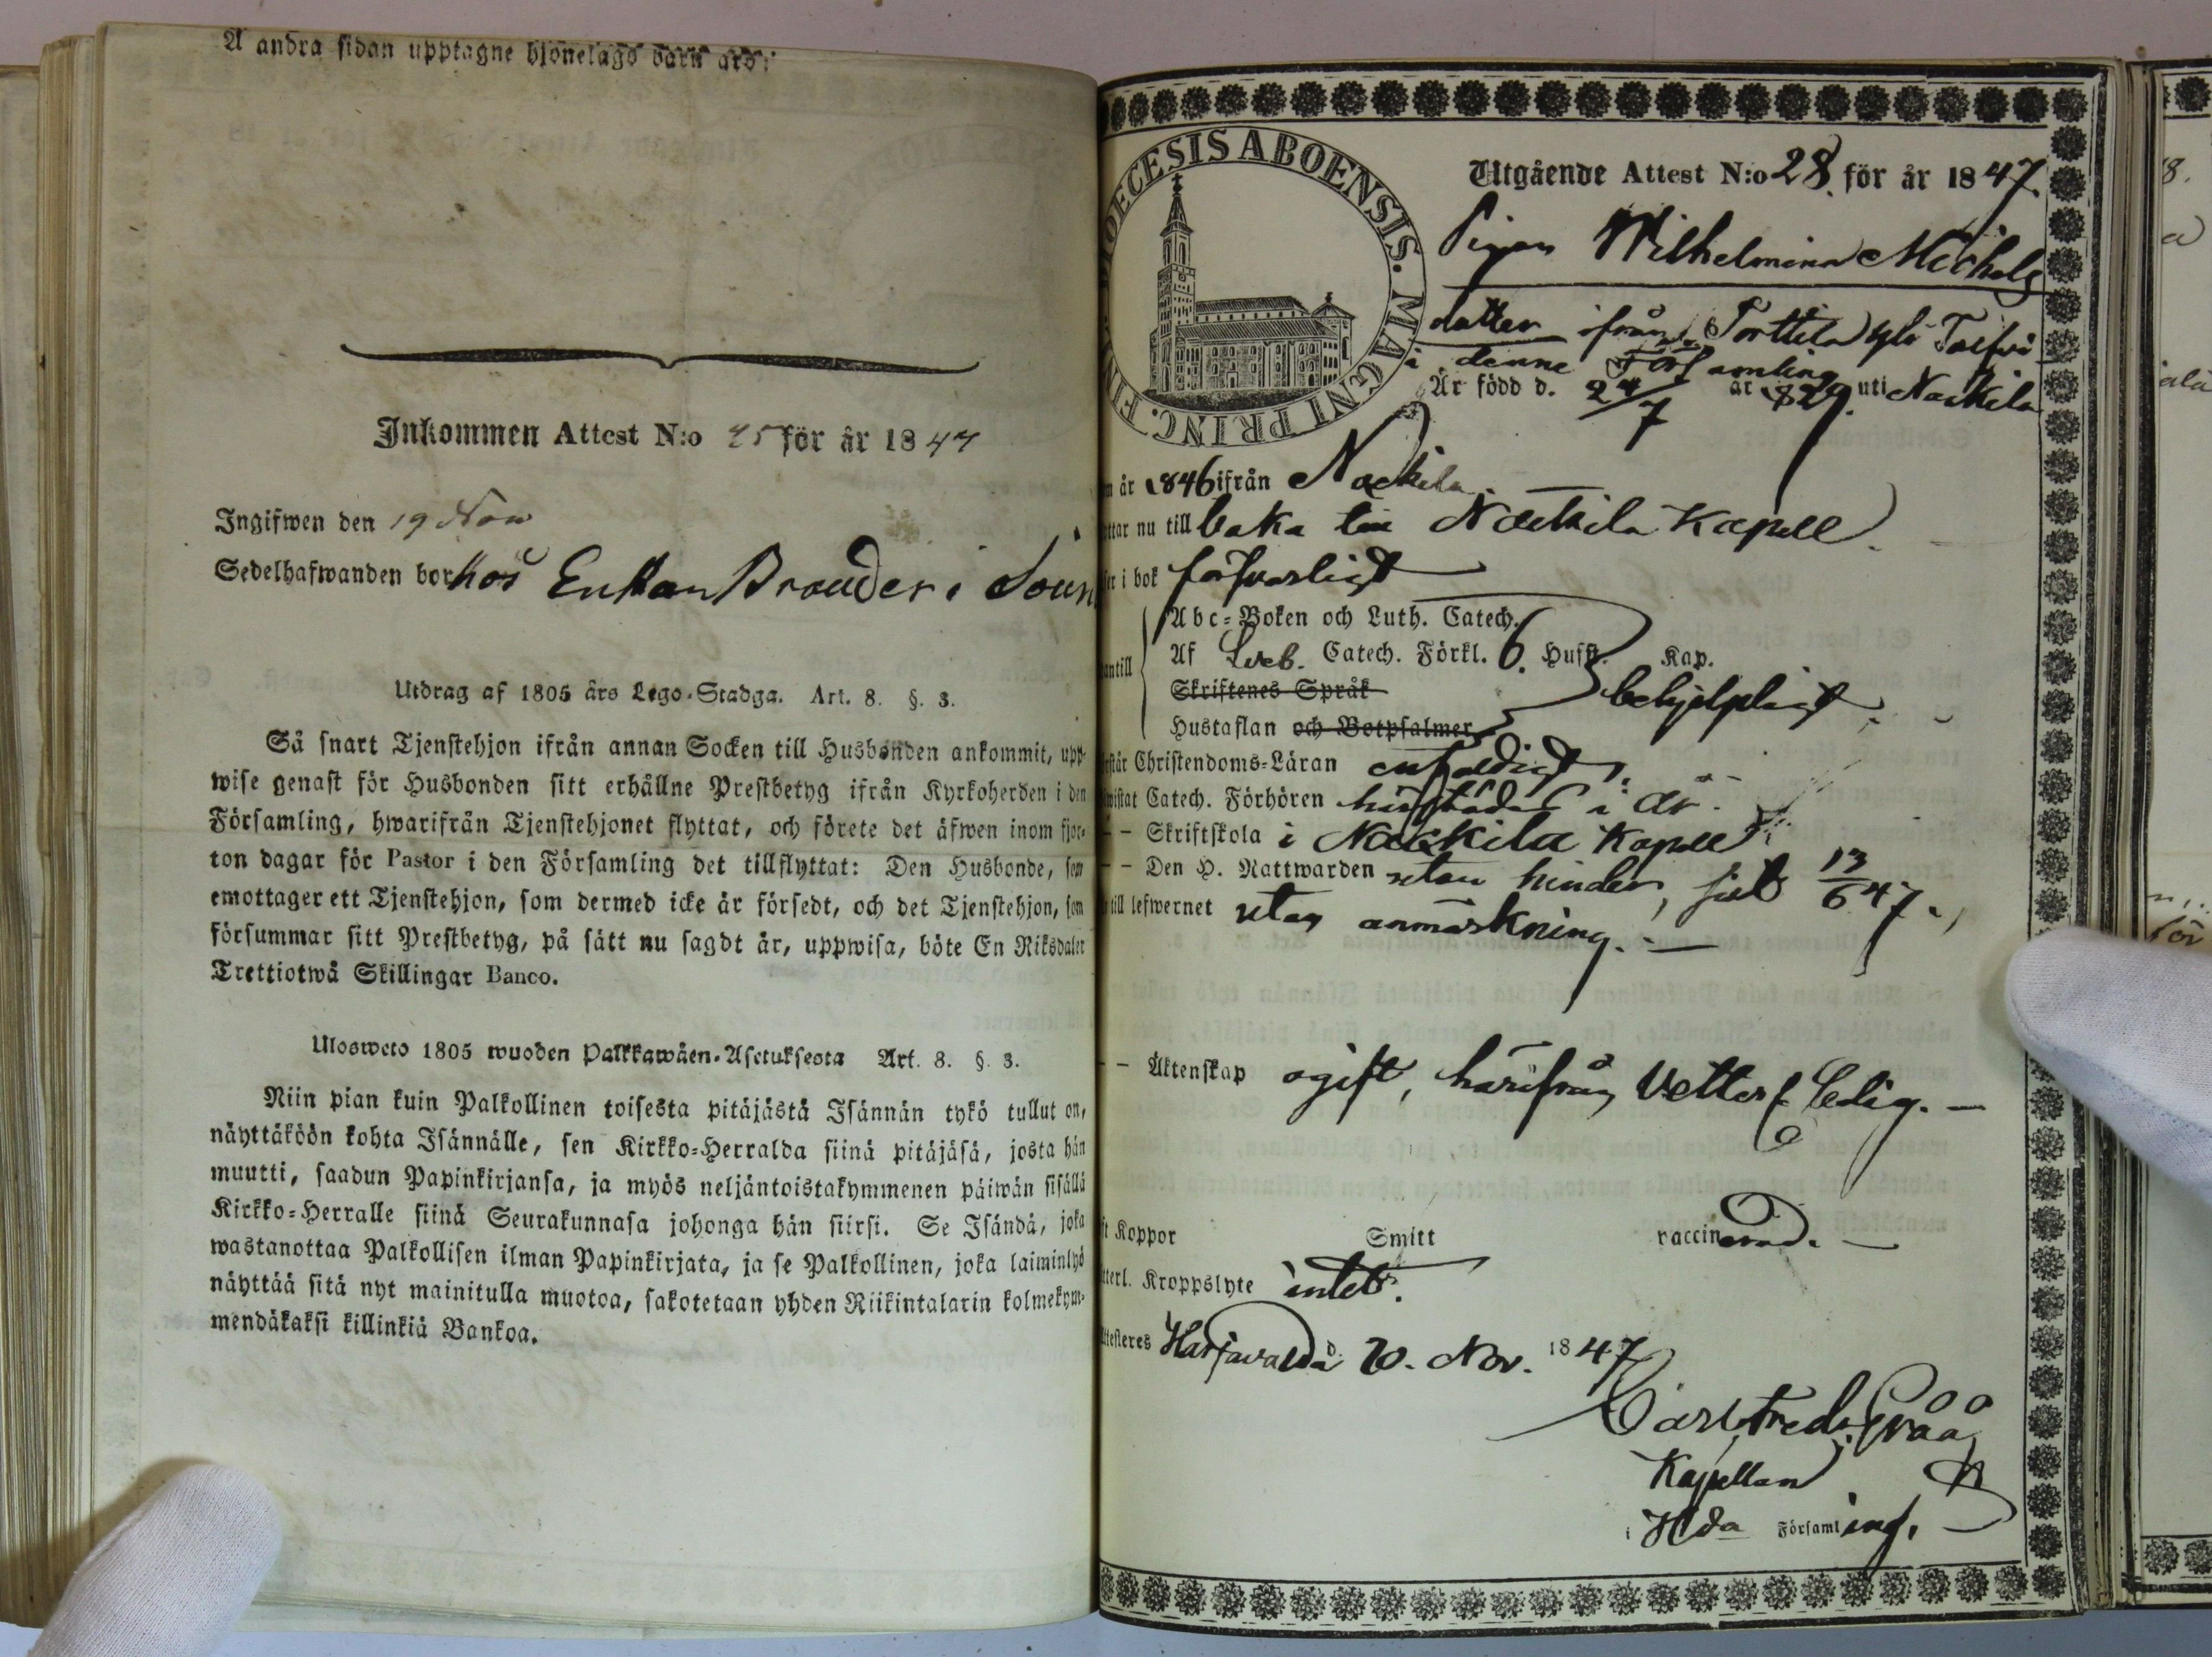 Å andra sidan upptagne hjonelags barn äro:
Inkommen Attest N:o 25 för år 1847
Ingifwen den 19 Nov
Sedelhafwanden bor hos Enkan i
Utdrag af 1805 års Lego-Stadga. Art. 8. §. 3.
Så snart Tjenstehjon ifrån annan Socken till Husbonden ankommit, upp-
wise genast för Husbonden sitt erhållne Prestbetyg ifrån Kyrkoherden i den
Församling, hwarifrån Tjenstehjonet flyttat, och förete det äfwen inom fjor-
ton dagar för Pastor i den Församling det tillflyttat: Den Husbonde, som
emottager ett Tjenstehjon, som dermed icke är försedt, och det Tjenstehjon, som
försummar sitt Prestbetyg, på sätt nu sagdt är, uppwisa, böte En Riksdaler
Trettiotwå Skillingar Banco.
Ulosweto 1805 wuoden Palkkawäen-Asetuksesta Art. 8. §. 3.
Niin pian kuin Palkollinen toisesta pitäjästä Isännän tykö tullut on,
näyttäköön kohta Isännälle, sen Kirkko-Herralda siinä pitäjäsä, josta hän
muutti, saadun Papinkirjansa, ja myös neljäntoistakymmenen päiwän sisällä
Kirkko-Herralle siinä Seurakunnasa johonga hän siirsi. Se Isändä, joka
wastanottaa Palkollisen ilman Papinkirjata, ja se Palkollinen, joka laiminlyö
näyttää sitä nyt mainitulla muotoa, sakotetaan yhden Riikintalarin kolmekym-
mendäkaksi killinkiä Bankoa.
DIOECESIS ABOENSIS. MAGNI PRINC. FINL.
Utgående Attest N:o 28. för år 1847.
Pigan Wilhelmina Michels
dotter ifrån Torttila
i denne Församling
Är född d. 24/7 år 829. uti Nackila
år 1846 ifrån Nackila.
ttar nu till baka till Nackila Kapell.
ser i bok försvarligt
Abc-Boken och Luth. Catech.
antill Af Sveb. Catech. Förkl. 6. Hufst. Kap.
Skriftenes Språk behjelpligt.
Hustaflan och Botpsalmer
rstår Christendoms-Läran enfaldigt.
wistat Catech. Förhören härstädes i år.
– – Skriftskola i Nackila Kapell
– – Den H. Nattwarden utan hinder, sist 13/6 47.
till lefwernet utan anmärkning. –
– – Äktenskap ogift, härifrån vetterl. ledig. –
ft Koppor Smitt vaccinerad. –
tterl. Kroppslyte intet.
ttesteres Harjavalda d. 20. Nov. 1847
Carl Fredr. Gråå
Kapellan
i Hda Församling.